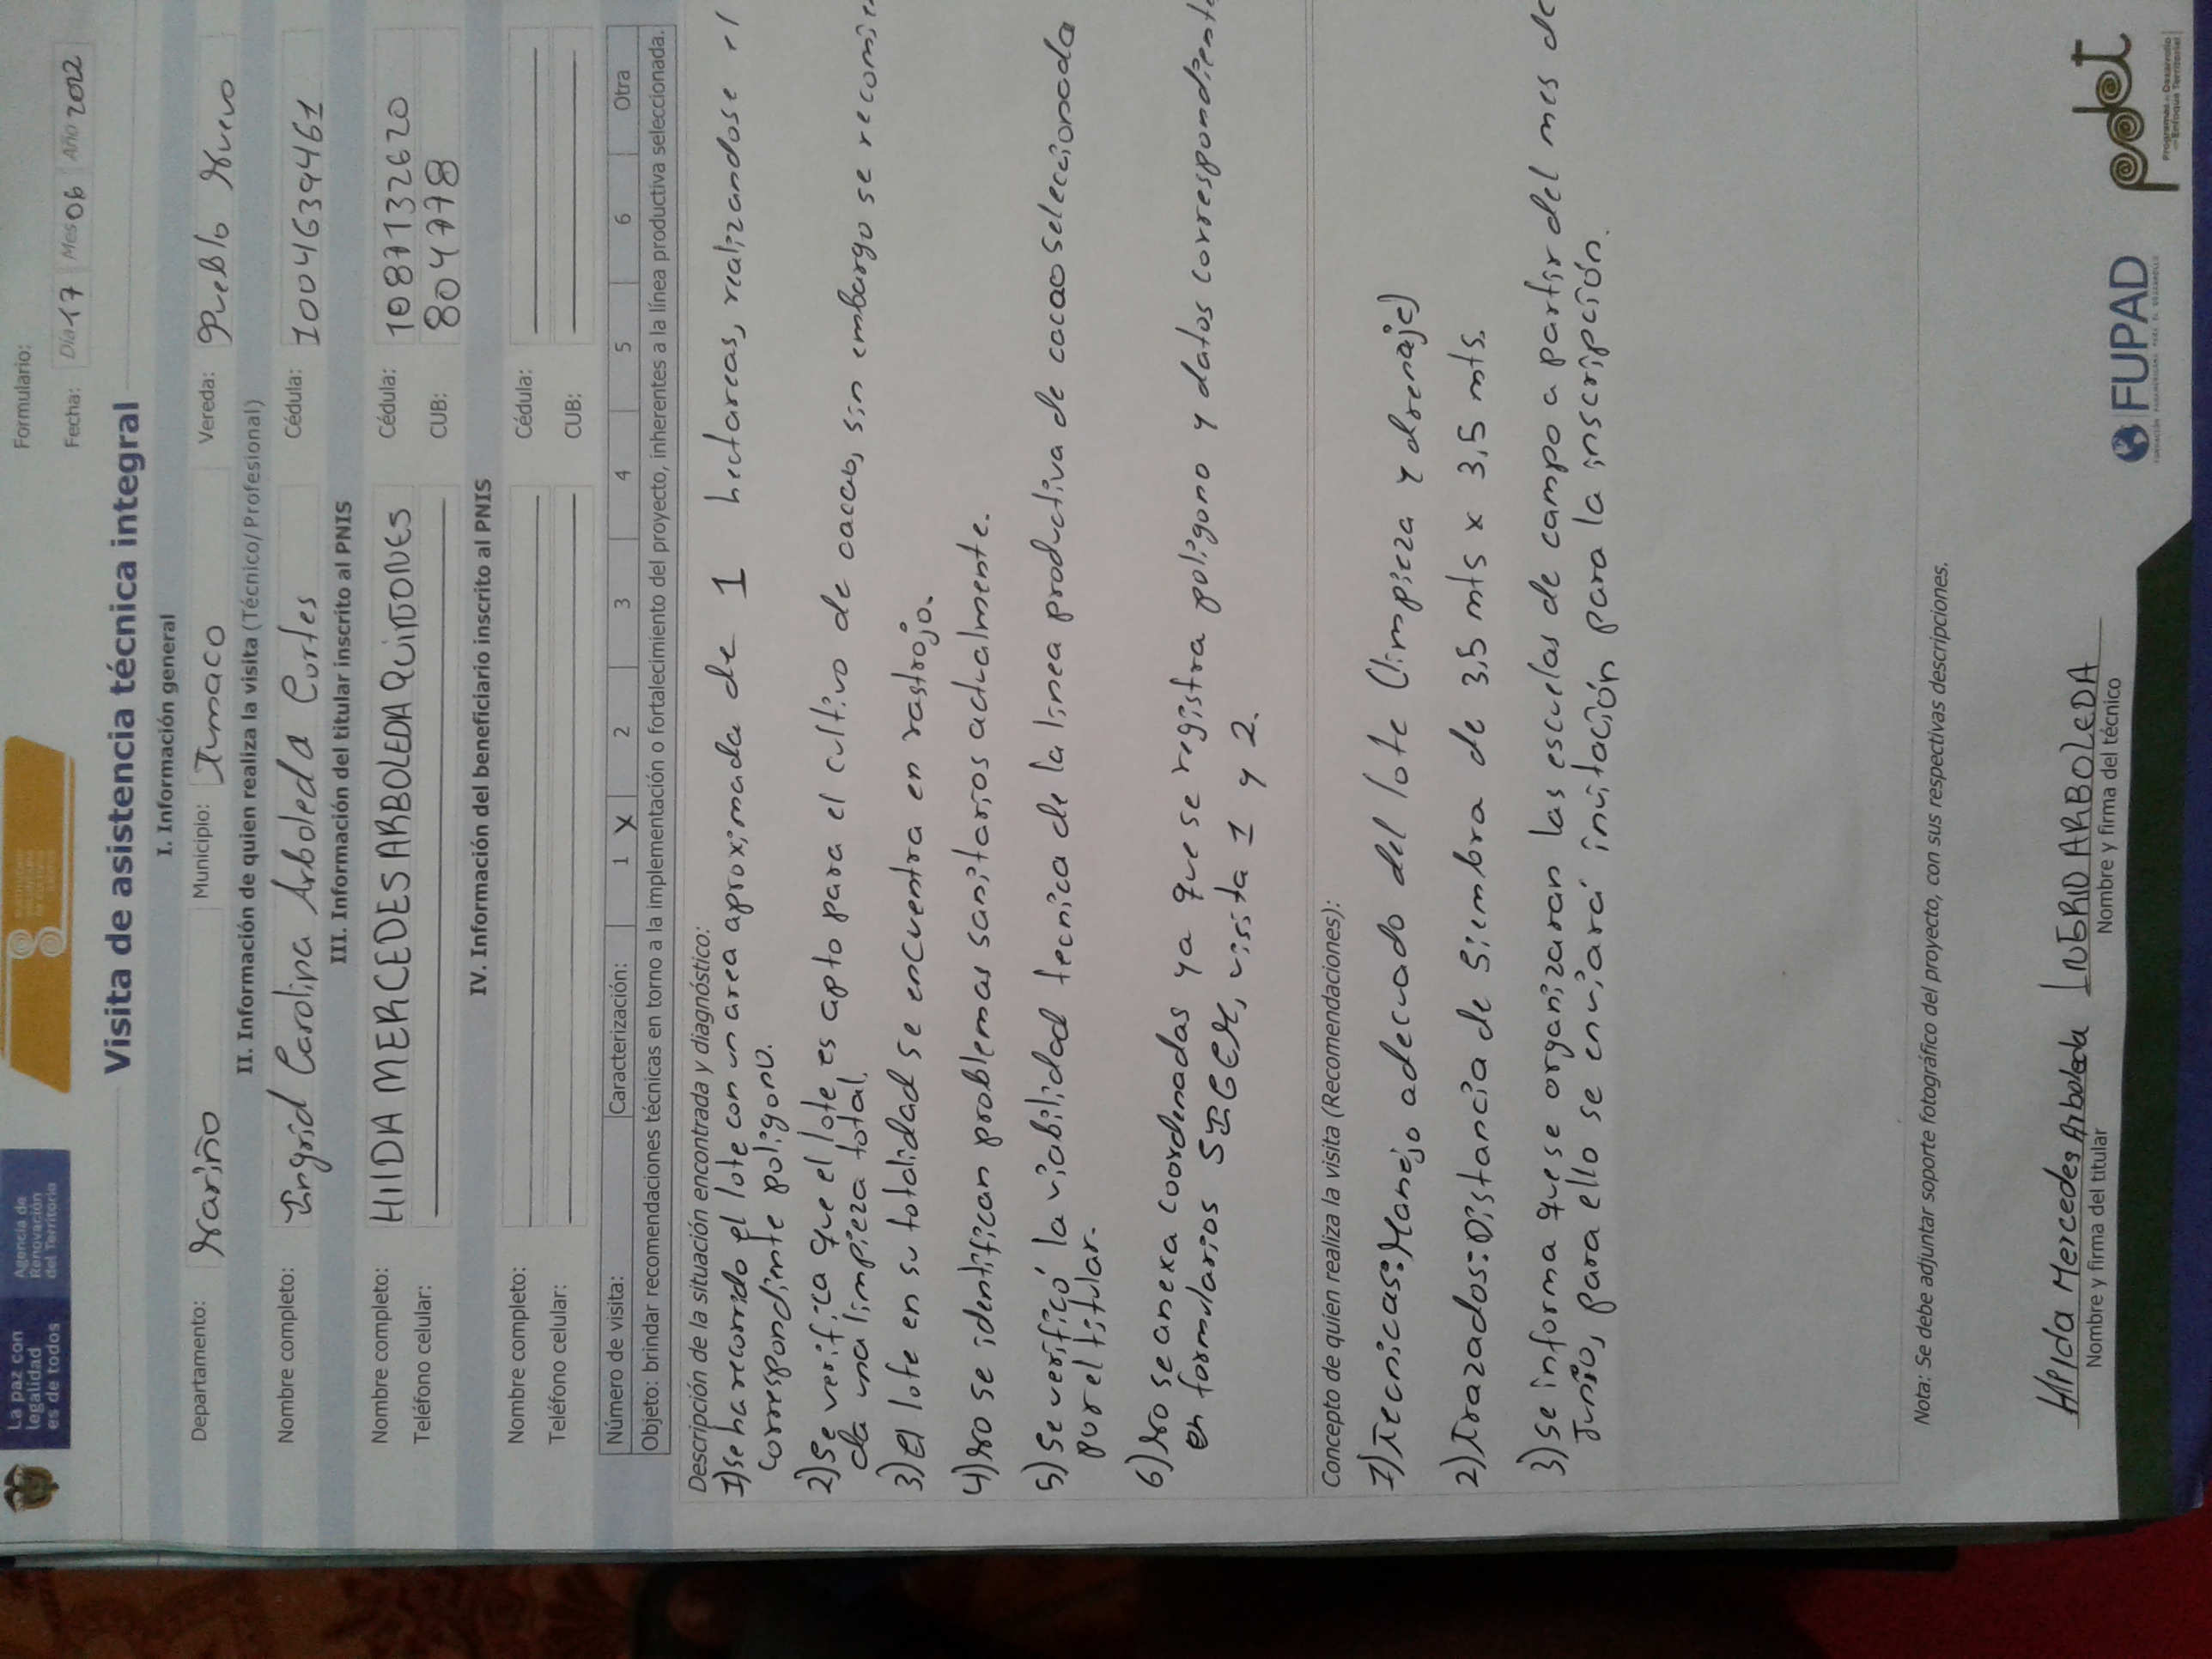 La paz con
legalidad
es de todos
Agencia de
Renovación
del Territorio
Formulario:
Fecha: Día 17 Mes 06 Año 2022
Visita de asistencia técnica integral
I. Información general
Departamento: Nariño Municipio: Tumaco Vereda: Pueblo Nuevo
II. Información de quien realiza la visita (Técnico/Profesional)
Nombre completo: Ingrid Carolina Arboleda Cortes Cédula: 1004639461
III. Información del titular inscrito al PNIS
Nombre completo: HIlDA MERCEDES ARBOLEDA QUIÑONES Cédula: 1087132620
Teléfono celular: CUB: 8047778
IV. Información del beneficiario inscrito al PNIS
Nombre completo: Cédula:
Teléfono celular: CUB:
Número de visita: Caracterización: 1 X 2 3 4 5 6 Otra
Objeto: brindar recomendaciones técnicas en torno a la implementación o fortalecimiento del proyecto, inherentes a la línea productiva seleccionada.
Descripción de la situación encontrada y diagnóstico:
1) Se ha recorrido el lote con un area aproximada de 1 hectareas, realizandose el
correspondiente poligono.
2) Se verifica que el lote es apto para el cultivo de cacao, sin embargo se recomien
da una limpieza total.
3) El lote en su totalidad se encuentra en rastrojo.
4) No se identifican problemas sanitarios actualmente.
5) Se verificó la viabilidad tecnica de la linea productiva de cacao seleccionada
por el titular.
6) No se anexa coordenadas ya que se registra poligono y datos correspondiente
en formularios SIGEN, visita 1 y 2.
Concepto de quien realiza la visita (Recomendaciones):
1) Tecnicas: Manejo adecuado del lote (limpieza y drenaje)
2) Trazados: Distancia de Siembra de 3,5 mts x 3,5 mts.
3) Se informa que se organizaran las escuelas de campo a partir del mes de
Junio, para ello se enviará invitación para la inscripción.
Nota: Se debe adjuntar soporte fotográfico del proyecto, con sus respectivas descripciones.
HIlda Mercedes Arboleda
Nombre y firma del titular
INGRID ARBOLEDA
Nombre y firma del técnico
FUPAD
FUNDACIÓN PANAMERICANA PARA EL DESARROLLO
pdet
Programas de Desarrollo
con Enfoque Territorial